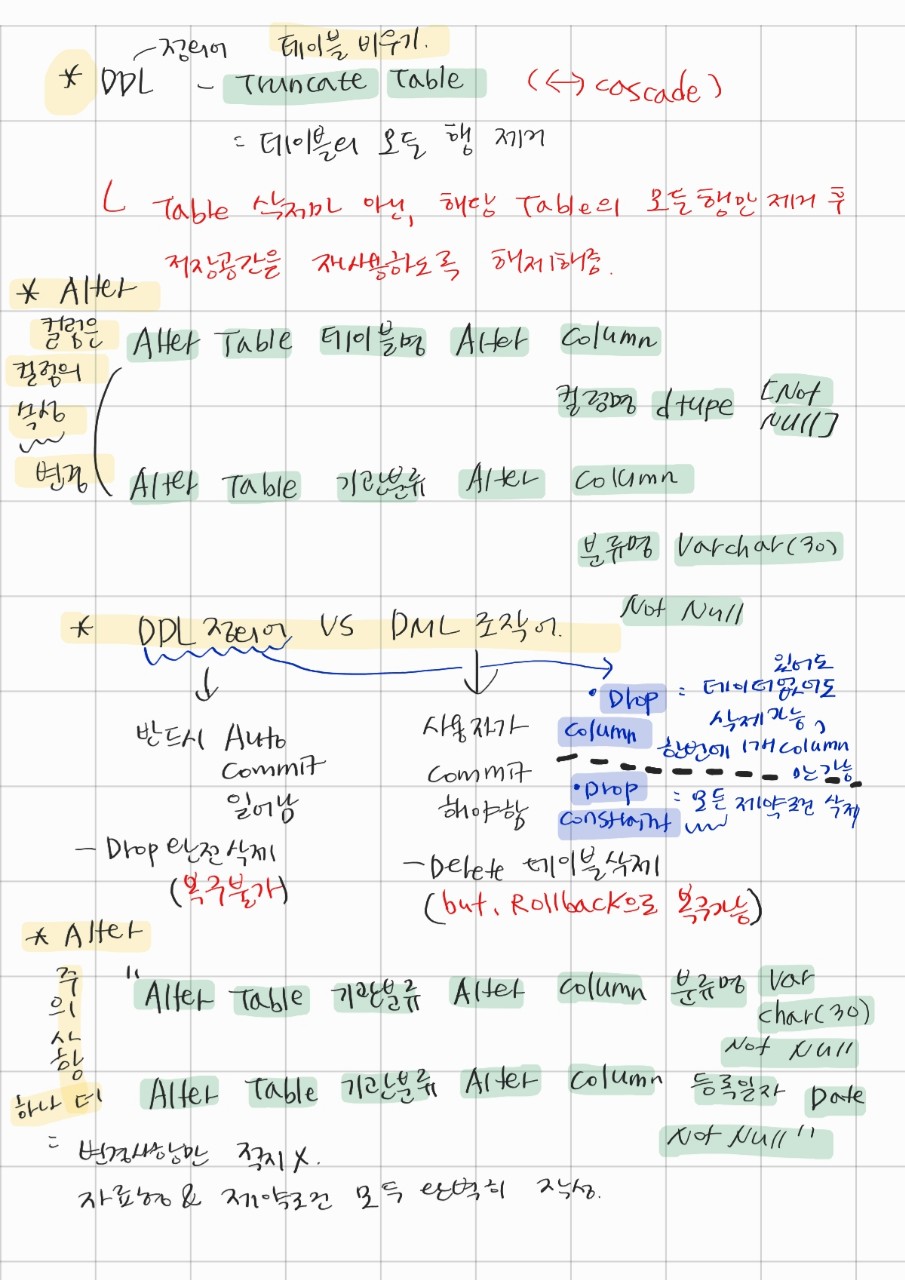 정의어 테이블 비우기.
* DDL - Truncate Table (↔ cascade)
= 테이블의 모든 행 제거
└ Table 삭제가 아닌, 해당 Table의 모든행만 제거 후
저장공간을 재사용하도록 해제해줌.
* Alter
컬럼은
컬럼의
속성
변경
Alter Table 테이블명 Alter Column
컬럼명 dtype [Not
Null]
Alter Table 기관분류 Alter Column
분류명 Varchar(30)
Not Null
* DDL 정의어 VS DML 조작어.
반드시 Auto
Commit
일어남
- Drop 완전삭제
(복구불가)
사용자가
Commit
해야함
- Delete 테이블삭제
(but, Rollback으로 복구가능)
• Drop
Column
= 데이터 있어도
없어도
삭제가능,
한번에 1개 column
만 가능
• Drop
Constraint
= 모든 제약조건 삭제
* Alter
주의사항
하나 더!
"Alter Table 기관분류 Alter Column 분류명 Var
char(30)
Not Null
Alter Table 기관분류 Alter Column 등록일자 Date
Not Null"
= 변경사항만 적지 X.
자료형 & 제약조건 모두 완벽히 작성.